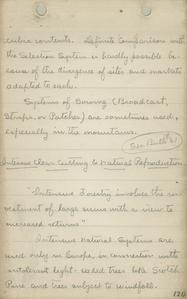 cubic contents. Definite Comparison with
the Selection System is hardly possible be-
cause of the divergence of sites and markets
adapted to each.
Systems of Sowing (Broadcast,
Strips, or Patches) are sometimes used,
especially in the mountains.
(See Bull #21)
Intensive Clear Cutting to Natural Reproduction.
"Intensive Forestry involves the in-
vestment of large sums with a view to
increased returns"
Intensive Natural Systems are
used only in Europe, in connection with
intolerant light-seeded trees like Scotch
Pine and trees subject to windfall.